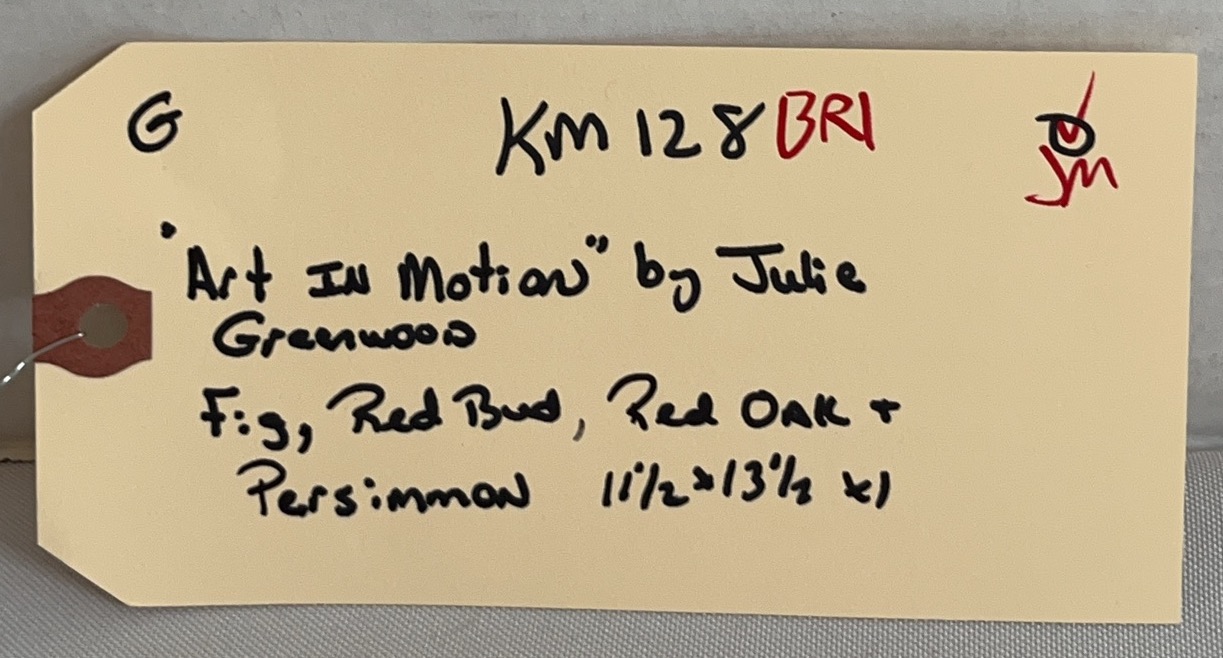 G KM 128 BRI
JM
"Art IN Motion" by Julie
Greenwood
Fig, Red Bud, Red OAK +
Persimmon 11 1/2 x 13 1/2 x 1